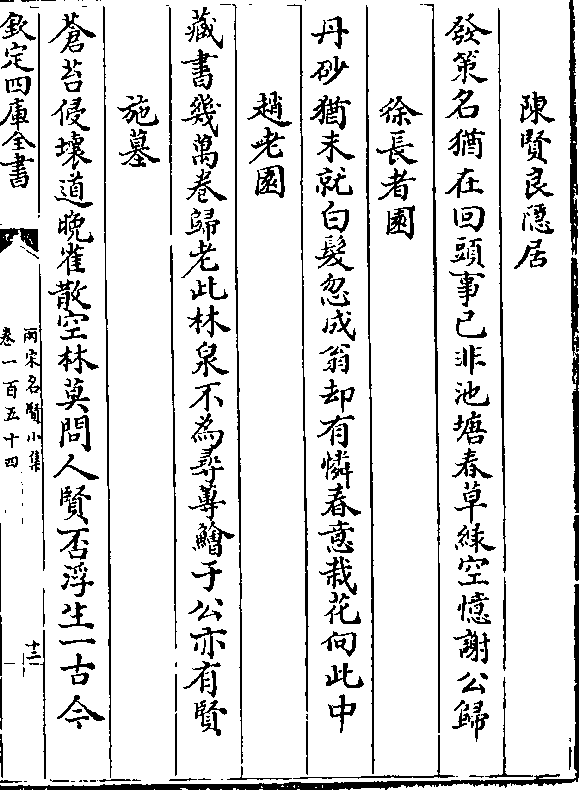 陳賢良隱居
發策名猶在回頭事已非池塘春草綠空憶謝公歸
徐長者園
丹砂猶未就白髮忽成翁却有憐春意栽花向此中
趙老園
藏書幾萬卷歸老此林泉不為尋蓴鱠于公亦有賢
施墓
蒼苔侵壞道晚雀散空林莫問人賢否浮生一古今
欽定四庫全書
兩宋名賢小集
卷一百五十四
十三